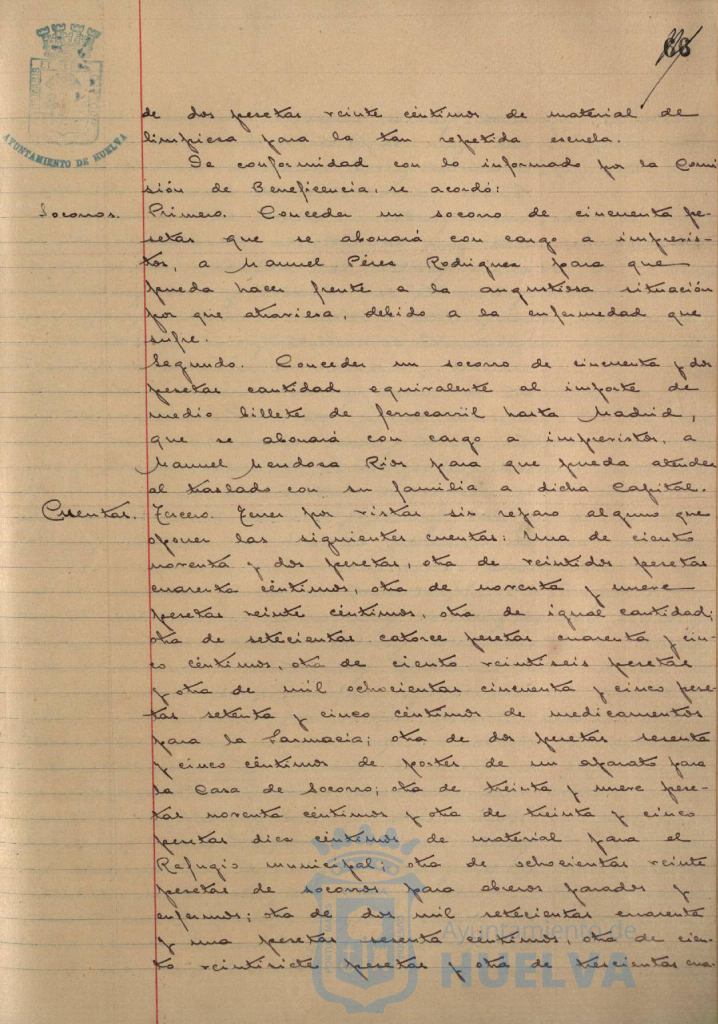 66
AYUNTAMIENTO DE HUELVA
de dos pesetas veinte céntimos de material de
limpiesa para la tan repetida escuela.
De conformidad con lo informado por la Comi
sión de Beneficencia, se acordó:
Socorros. Primero. Conceder un socorro de cincuenta pe-
setas que se abonará con cargo a imprevis-
tos, a Manuel Pérez Rodriguez para que
pueda hacer frente a la angustiosa situación
por que atraviesa, debido a la enfermedad que
sufre.
Segundo. Conceder un socorro de cincuenta y dos
pesetas cantidad equivalente al importe de
medio billete de ferrocarril hasta Madrid,
que se abonará con cargo a imprevistos, a
Manuel Mendosa Rios para que pueda atender
al traslado con su familia a dicha Capital.
Cuentas. Tercero. Tener por vistas sin reparo alguno que
oponer las siguientes cuentas: Una de ciento
noventa y dos pesetas, otra de veintidos pesetas
cuarenta céntimos, otra de noventa y nueve
pesetas veinte céntimos, otra de igual cantidad;
otra de setecientas catorce pesetas cuarenta y cin-
co céntimos, otra de ciento veintiseis pesetas
y otra de mil ochocientas cincuenta y cinco pese-
tas setenta y cinco céntimos de medicamentos
para la Farmacia; otra de dos pesetas sesenta
y cinco céntimos de portes de un aparato para
la Casa de Socorro; otra de treinta y nueve pese-
tas noventa céntimos y otra de treinta y cinco
pesetas diez céntimos de material para el
Refugio municipal; otra de ochocientas veinte
pesetas de socorros para obreros parados y
enfermos; otra de dos mil setecientas cuarenta
y una pesetas sesenta céntimos, otra de cien-
to veintisiete pesetas y otra de trescientas cua-
Ayuntamiento de
HUELVA